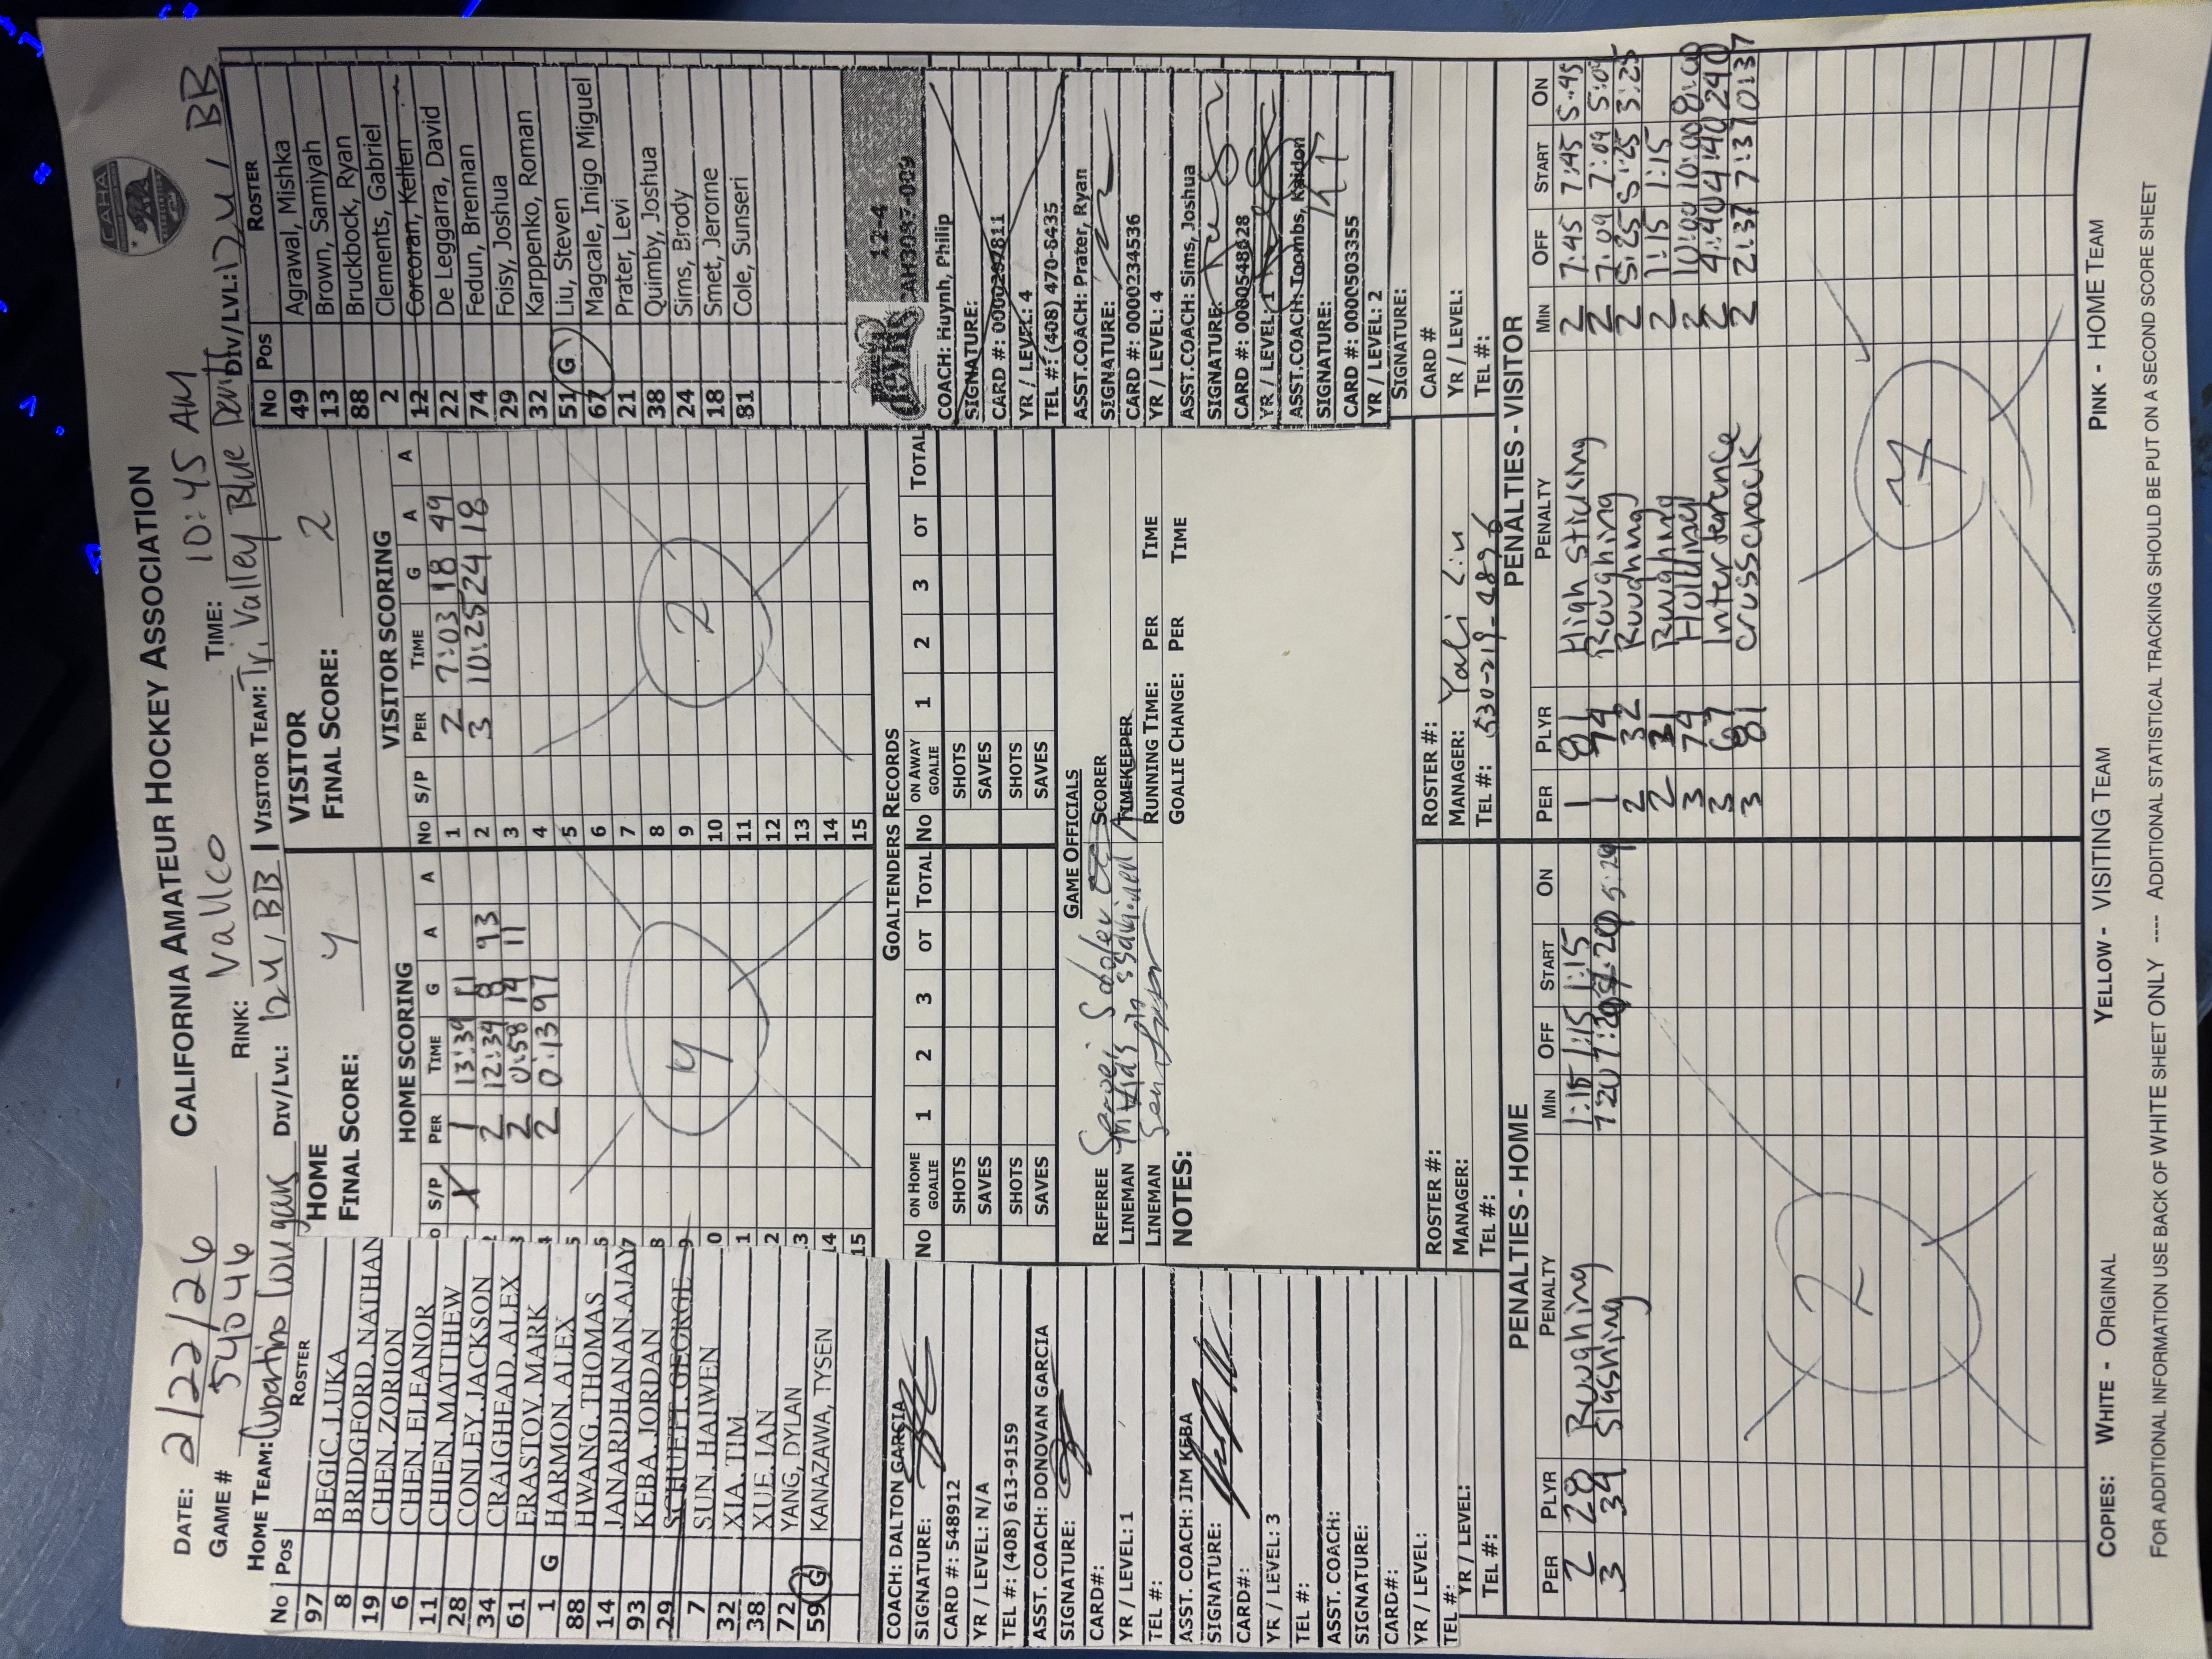 CAHA
CALIFORNIA AMATEUR HOCKEY ASSOCIATION
DATE: 2/22/26
GAME # 54046
RINK: Vallco
TIME: 10:45 AM
HOME TEAM: Cupertino Cougars DIV/LVL: 12U / BB
VISITOR TEAM: Tri Valley Blue Devils DIV/LVL: 12U / BB
HOME
FINAL SCORE: 4
VISITOR
FINAL SCORE: 2
No Pos ROSTER
97 BEGIC, LUKA
8 BRIDGEFORD, NATHAN
19 CHEN, ZORION
6 CHEN, ELEANOR
11 CHIEN, MATTHEW
28 CONLEY, JACKSON
34 CRAIGHEAD, ALEX
61 ERASTOV, MARK
1 G HARMON, ALEX
88 HWANG, THOMAS
14 JANARDHANAN, AJAY
93 KEBA, JORDAN
29 SCHUETT, GEORGE
7 SUN, HAIWEN
32 XIA, TIM
38 XUE, IAN
72 YANG, DYLAN
59 G KANAZAWA, TYSEN
HOME SCORING
S/P PER TIME G A A
X 1 13:39 11
2 12:34 8 93
2 0:58 14 11
2 0:13 97
4
VISITOR SCORING
No S/P PER TIME G A A
1 2 7:03 18 49
2 3 10:25 24 18
3
4
5
6
7
8
9
10
11
12
13
14
15
2
No Pos ROSTER
49 Agrawal, Mishka
13 Brown, Samiyah
88 Bruckbock, Ryan
2 Clements, Gabriel
12 Corcoran, Kellen
22 De Leggarra, David
74 Fedun, Brennan
29 Foisy, Joshua
32 Karppenko, Roman
51 G Liu, Steven
67 Magcale, Inigo Miguel
21 Prater, Levi
38 Quimby, Joshua
24 Sims, Brody
18 Smet, Jerome
81 Cole, Sunseri
COACH: DALTON GARCIA
SIGNATURE:
CARD #: 548912
YR / LEVEL: N/A
TEL #: (408) 613-9159
ASST. COACH: DONOVAN GARCIA
SIGNATURE:
CARD#:
YR / LEVEL: 1
TEL #:
ASST. COACH: JIM KEBA
SIGNATURE:
CARD#:
YR / LEVEL: 3
TEL #:
ASST. COACH:
SIGNATURE:
CARD#:
YR / LEVEL:
TEL #:
YR / LEVEL:
TEL #:
GOALTENDERS RECORDS
No ON HOME GOALIE 1 2 3 OT TOTAL No ON AWAY GOALIE 1 2 3 OT TOTAL
SHOTS SHOTS
SAVES SAVES
SHOTS SHOTS
SAVES SAVES
GAME OFFICIALS
REFEREE SCORER
LINEMAN TIMEKEEPER
LINEMAN RUNNING TIME: PER TIME
NOTES: GOALIE CHANGE: PER TIME
devils
12-4
COACH: Huynh, Phillip
SIGNATURE:
CARD #: 0000297811
YR / LEVEL: 4
TEL #: (408) 470-8435
ASST.COACH: Prater, Ryan
SIGNATURE:
CARD #: 0000234536
YR / LEVEL: 4
ASST.COACH: Sims, Joshua
SIGNATURE:
CARD #: 0000548628
YR / LEVEL: 1
ASST.COACH: Toombs, Kaidon
SIGNATURE:
CARD #: 0000503355
YR / LEVEL: 2
SIGNATURE:
CARD #
YR / LEVEL:
TEL #:
ROSTER #:
MANAGER:
TEL #:
ROSTER #:
MANAGER: Yali Liu
TEL #: 530-219-4896
PENALTIES - HOME
PER PLYR PENALTY MIN OFF START ON
2 28 Roughing 1:15 1:15 1:15
3 34 Slashing
2
PENALTIES - VISITOR
PER PLYR PENALTY MIN OFF START ON
1 81 High sticking 2 7:45 7:45 5:45
1 74 Roughing 2 7:09 7:09 5:09
2 32 Roughing 2 5:25 5:25 3:25
2 Roughing 2 1:15 1:15
3 74 Holding 2 10:00 10:00 8:00
3 67 Interference 2 4:40 4:40 2:40
3 81 crosscheck 2 2:37 0:37
7
COPIES: WHITE - ORIGINAL YELLOW - VISITING TEAM PINK - HOME TEAM
FOR ADDITIONAL INFORMATION USE BACK OF WHITE SHEET ONLY ---- ADDITIONAL STATISTICAL TRACKING SHOULD BE PUT ON A SECOND SCORE SHEET